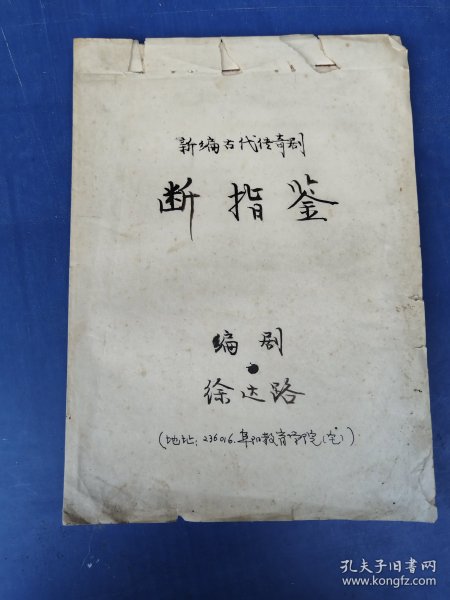 新编古代传奇剧
断指鉴
编剧
徐达路
(地址:236016.阜阳教育学院(宅))
孔夫子旧书网
www.kongfz.com